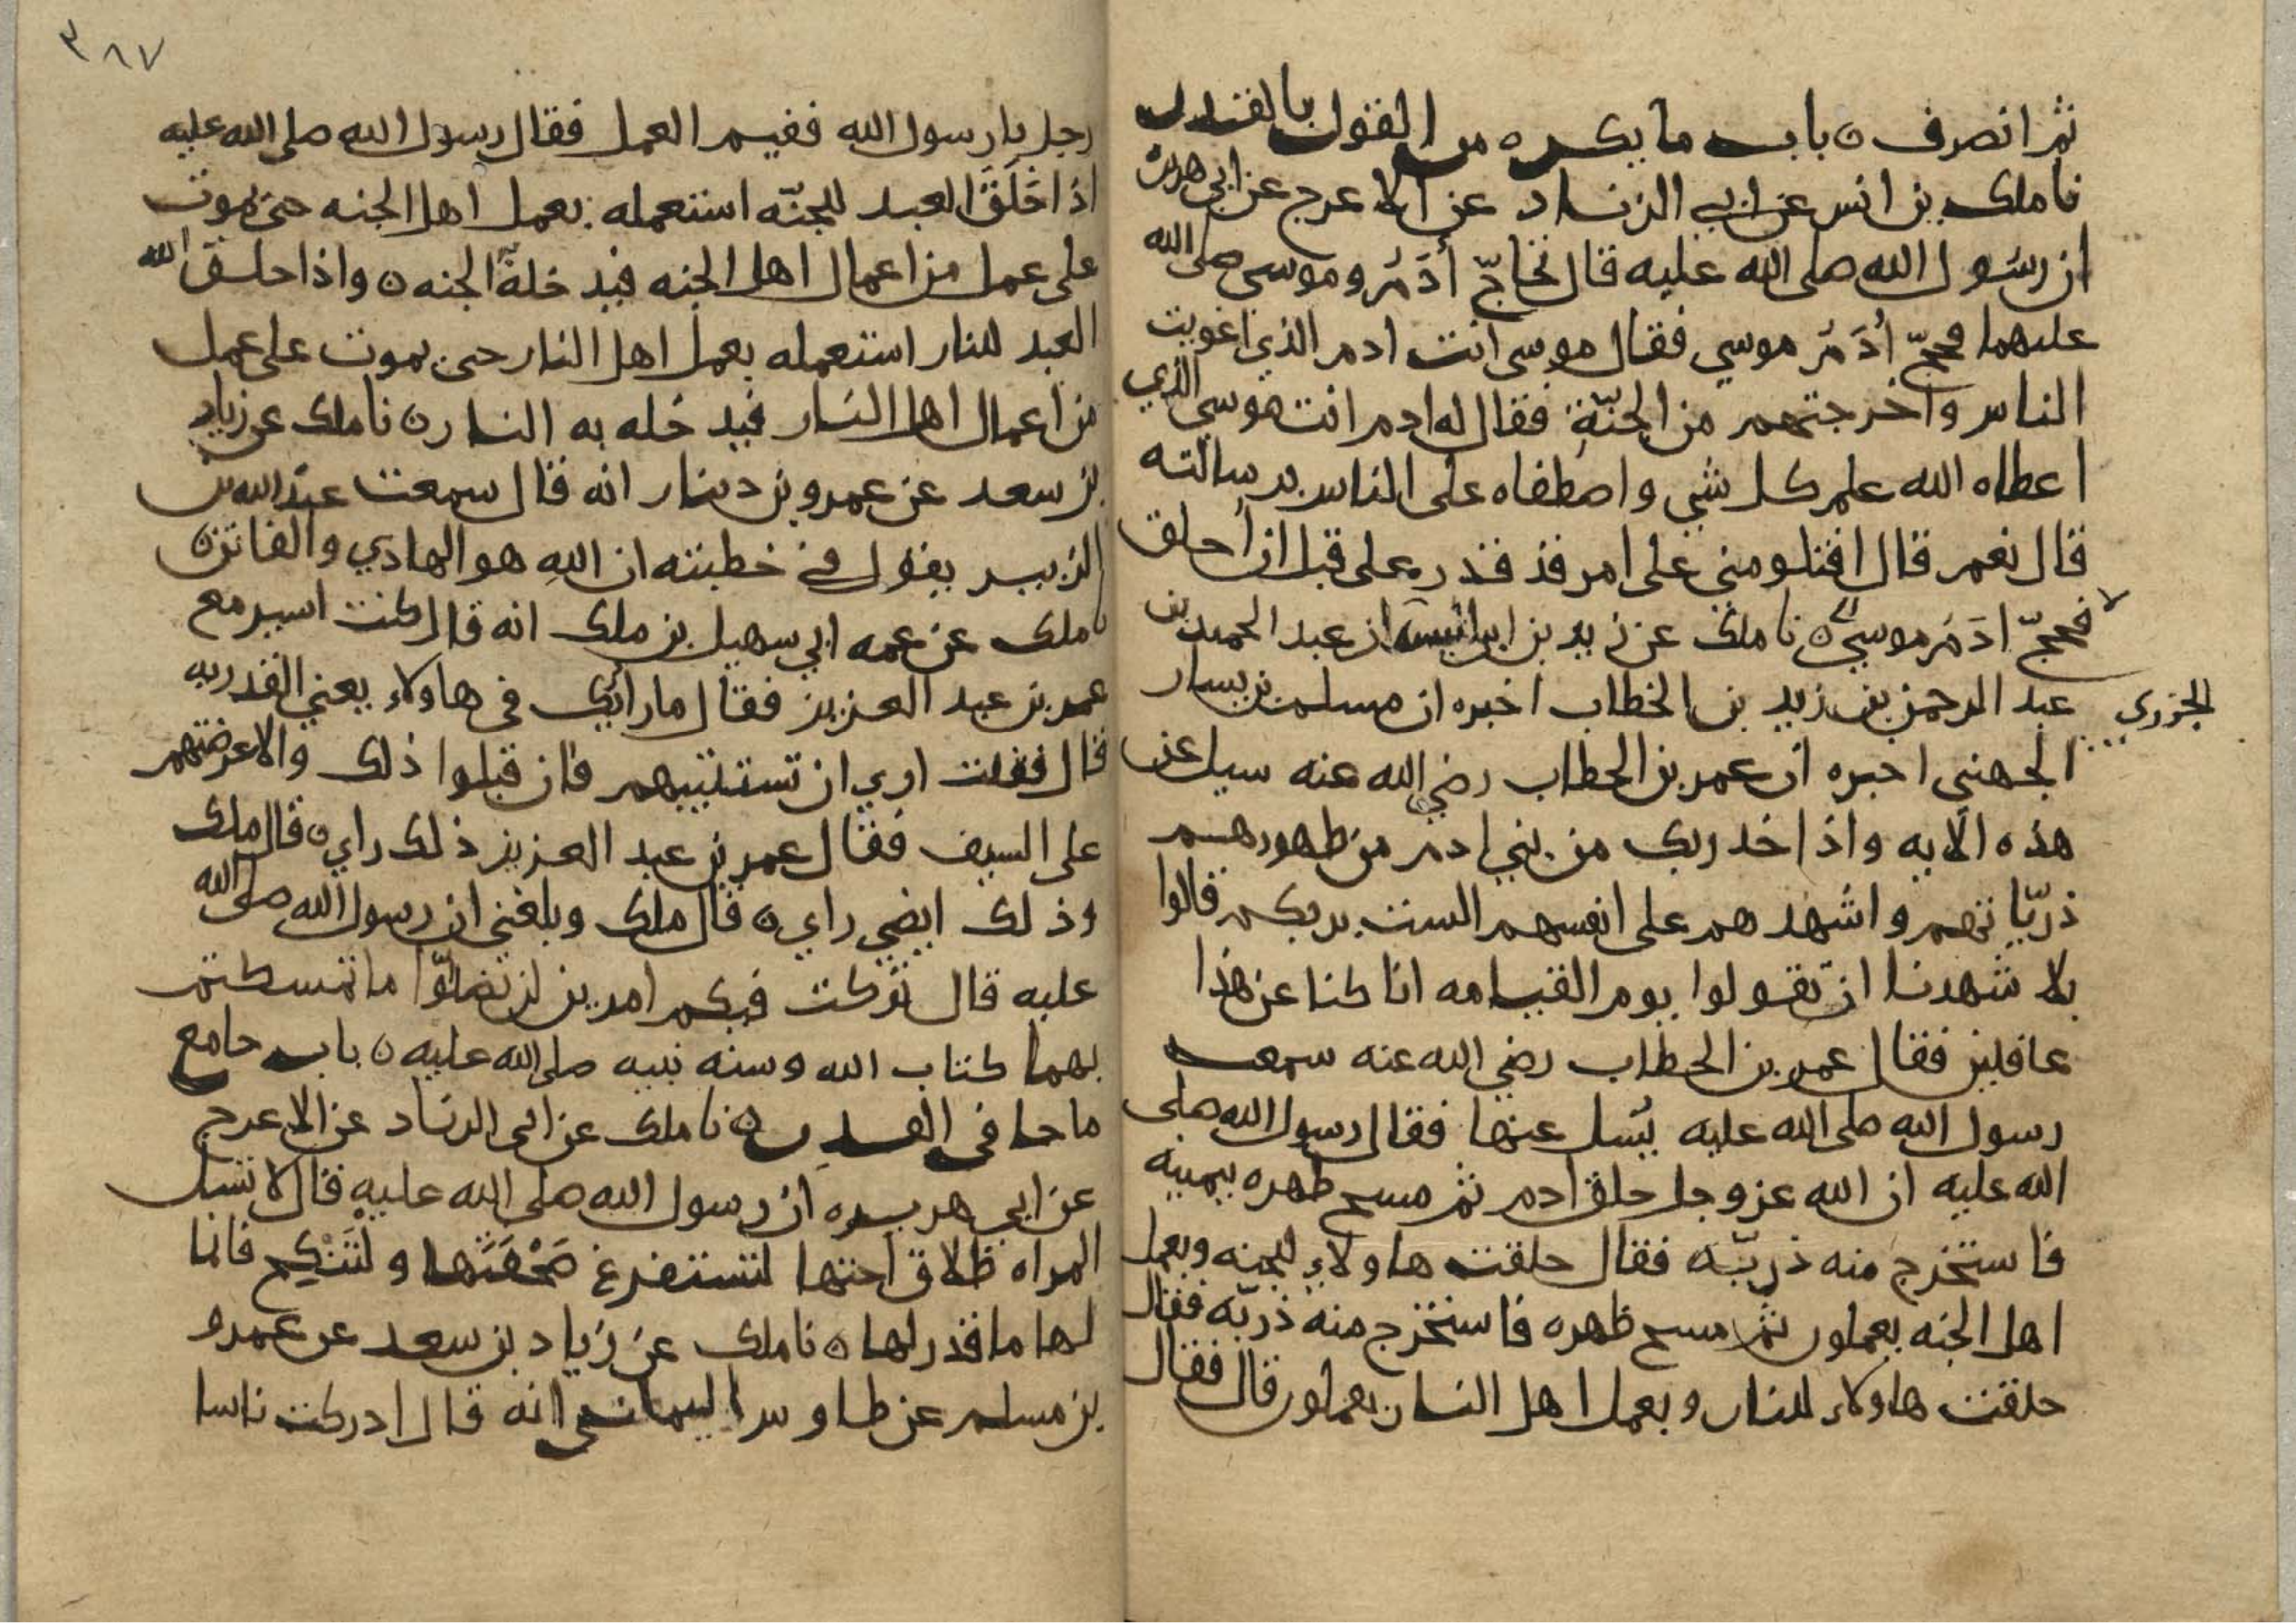 ثم انصرف ن باب ما يكره من القول بالقدر
نا ملك بن انس عن ابي الزناد عن الاعرج عن ابي هريرة
ان رسول الله صلى الله عليه قال تحاجّ أدَمُ وموسى صلى الله
عليهما فحجّ أدَمُ موسي فقال موسى انت ادم الذي اغويت
الناس واخرجتهم من الجنّة فقال له ادم انت موسى الذي
اعطاه الله علم كل شي واصطفاه على الناس برسالته
قال نعم قال افتلومني على امر قد قدر على قبل ان أخلق
فحجّ ادَمُ موسى ن نا ملك عن زيد بن ابي انيسة ان عبد الحميد بن
عبد الرحمن بن زيد بن الخطاب اخبره ان مسلم بن يسار
الجزري
الجهني اخبره ان عمر بن الخطاب رضي الله عنه سيل عن
هذه الايه واذ اخد ربك من بني ادم من ظهورهم
ذريّاتهم واشهدهم على انفسهم الست بربكم قالوا
بلا شهدنا ان تقولوا يوم القيامه انا كنا عن هذا
غافلين فقال عمر بن الخطاب رضي الله عنه سمعت
رسول الله صلى الله عليه يُسل عنها فقال رسول الله صلى
الله عليه ان الله عز وجل خلق ادم ثم مسح ظهره بيمينه
فاستخرج منه ذريّه فقال خلقت هاولاء للجنه وبعمل
اهل الجنه يعملون ثم مسح ظهره فاستخرج منه ذريّه فقال
خلقت هاولاء للنار وبعمل اهل النار يعملون قال فقال
٣٨٧
رجل يا رسول الله ففيم العمل فقال رسول الله صلى الله عليه
اذا خَلَقَ العبد للجنّه استعمله بعمل اهل الجنه حتى يموت
على عمل من اعمال اهل الجنه فيدخلهُ الجنه ن واذا خلق الله
العبد للنار استعمله بعمل اهل النار حتى يموت على عمل
من اعمال اهل النار فيدخله به النار ن نا ملك عن زياد
بن سعد عن عمرو بن دينار انه قال سمعت عبد الله بن
الزبير يقول في خطبته ان الله هو الهادي والفاتن ن
نا ملك عن عمه ابي سهيل بن ملك انه قال كنت اسير مع
عمر بن عبد العزيز فقال ما رائيك في هاولاء يعني القدريه
قال فقلت اري ان تستتيبهم فان قبلوا ذلك والا عرضتهم
على السيف فقال عمر بن عبد العزيز ذلك راي ن قال ملك
وذلك ايضي راي ن قال ملك وبلغني ان رسول الله صلى الله
عليه قال تركت فيكم امرين لن تضلّوا ما تمسكتم
بهما كتاب الله وسنه نبيه صلى الله عليه ن باب جامع
ما جا في القدر ن نا ملك عن ابي الزناد عن الاعرج
عن ابي هريره ان رسول الله صلى الله عليه قال لا تسل
المراه طلاق اختها لتستفرغ صَحْفَتَها ولتَنْكِح فانما
لها ما قدر لها ن نا ملك عن زياد بن سعد عن عمرو
بن مسلم عن طاوس اليماني انه قال ادركت ناسا